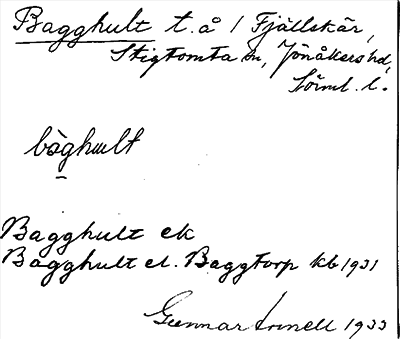 Bagghult t.å / Fjällskär,
Stigtomta sn, Jönåkers hd,
Sörml. l.
bàghult
Bagghult ek
Bagghult el. Baggtorp kb 1931
Gunnar Linell 1933